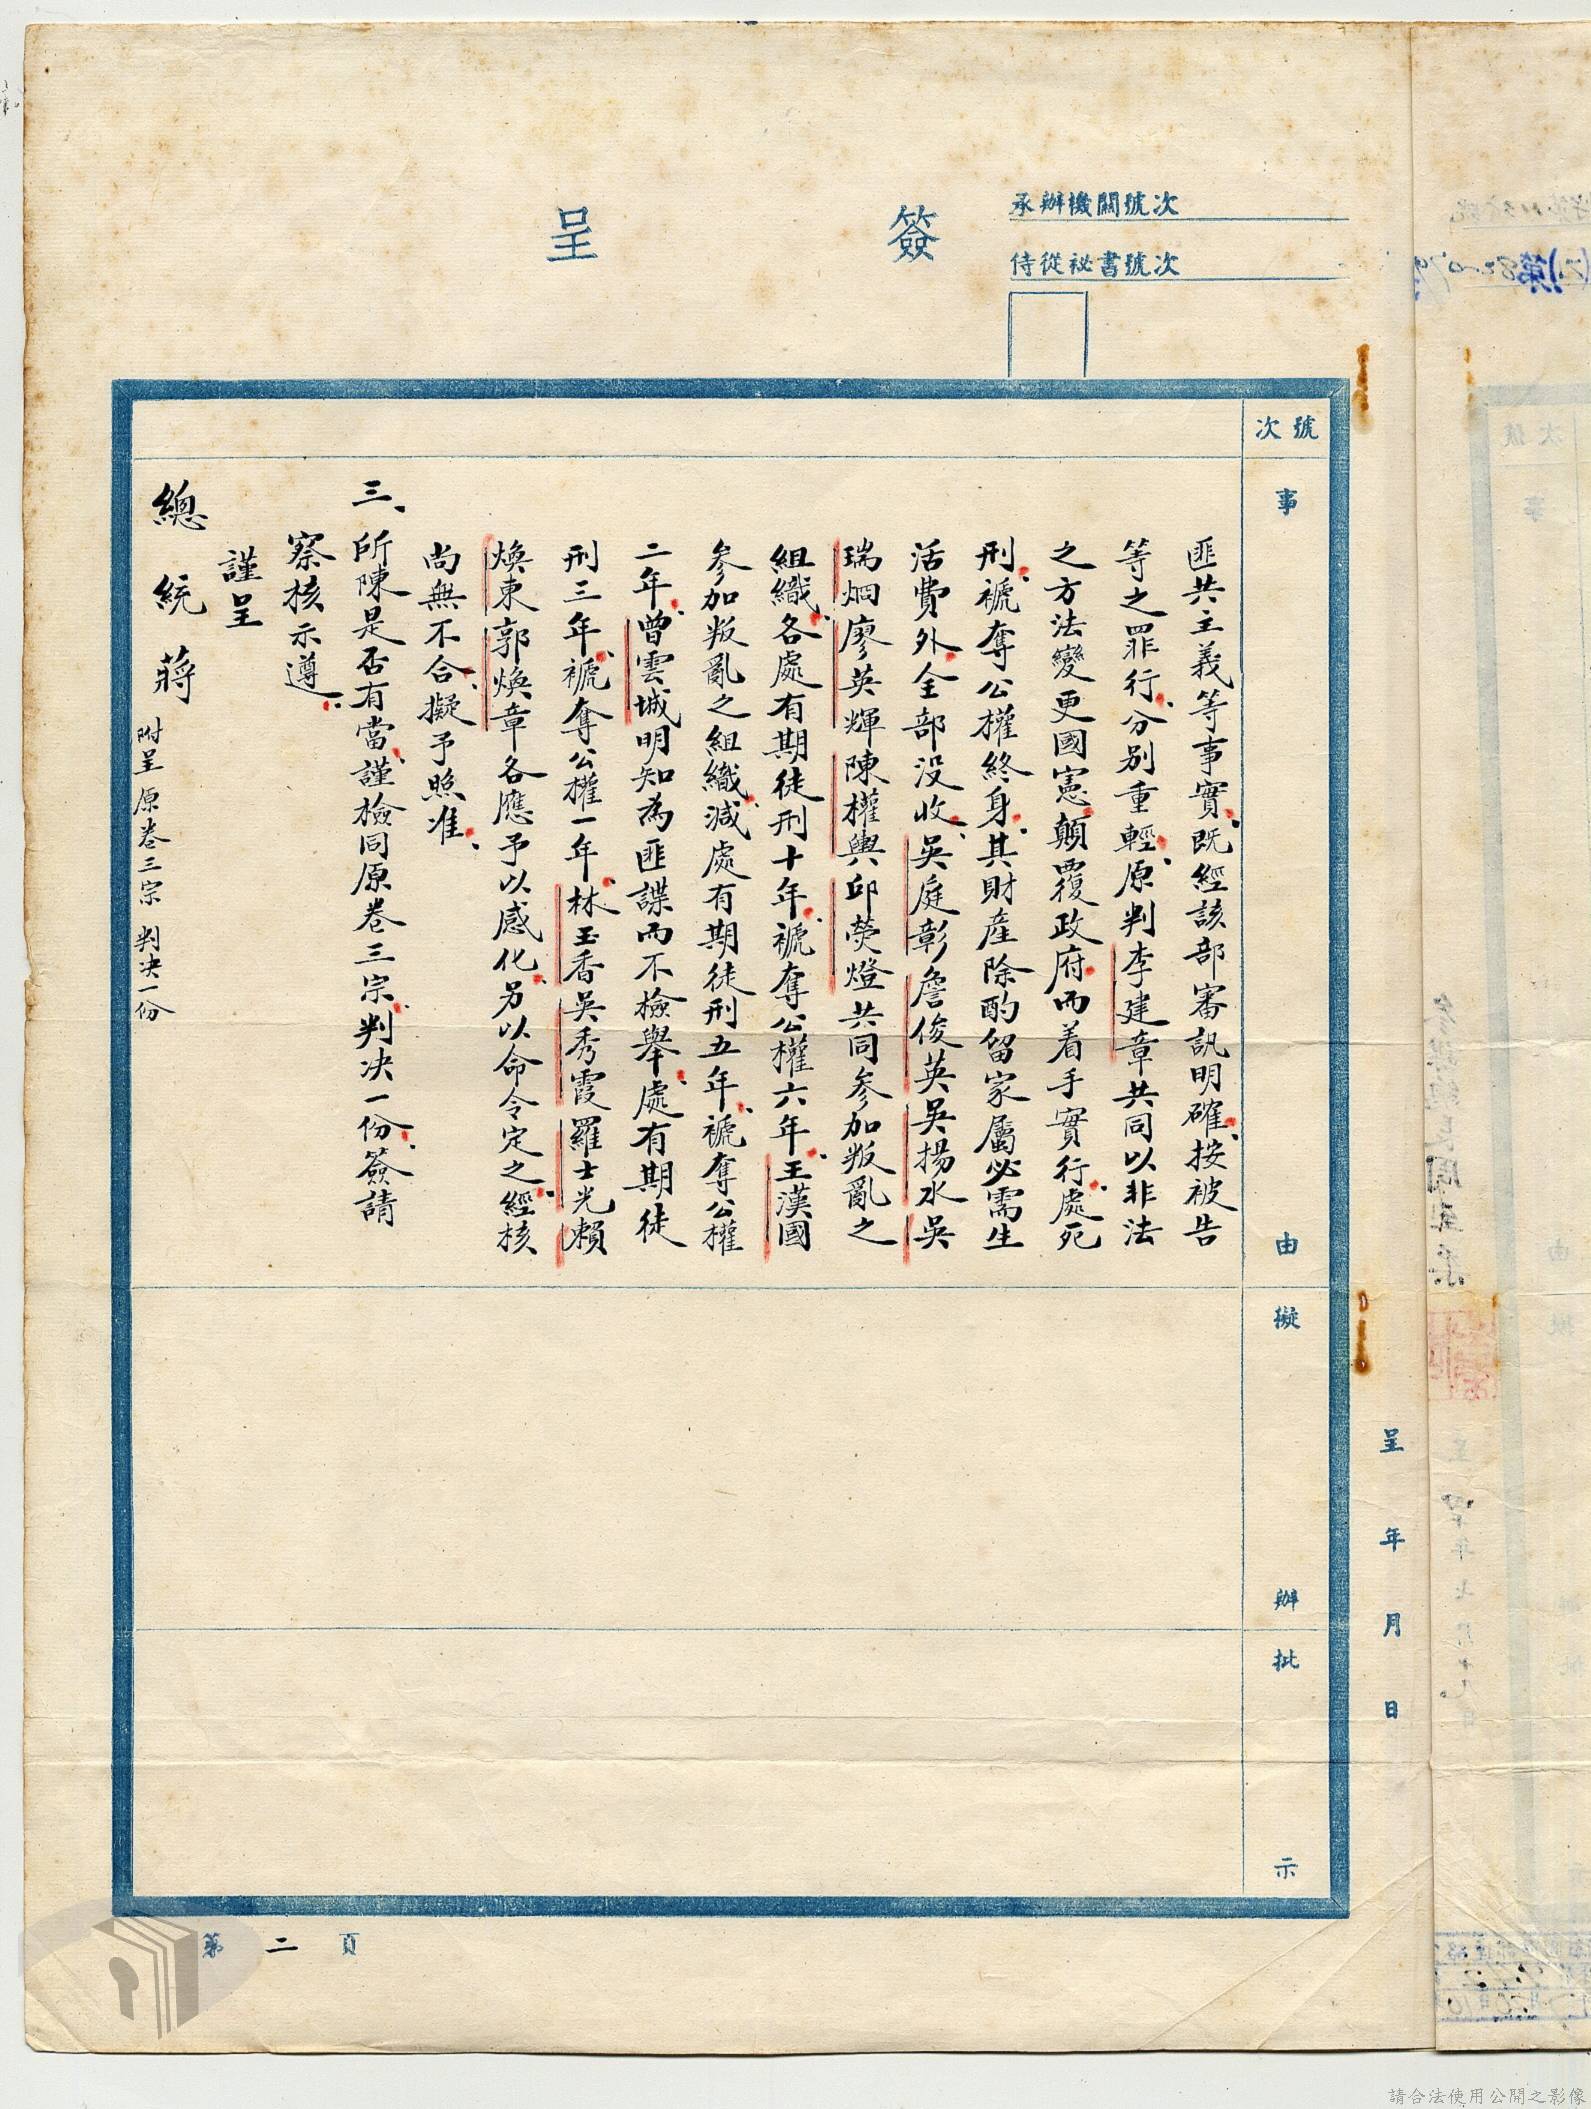 簽呈
承辦機關號次
侍從祕書號次
號次
事由
擬辦
批示
呈 年 月 日
匪共主義等事實、既經該部審訊明確、按被告
等之罪行、分別重輕、原判李建章共同以非法
之方法變更國憲、顛覆政府、而着手實行、處死
刑、褫奪公權終身、其財產除酌留家屬必需生
活費外、全部沒收、吳庭彰詹俊英吳揚水吳
瑞炯廖英輝陳權興邱熒燈共同參加叛亂之
組織、各處有期徒刑十年、褫奪公權六年、王漢國
參加叛亂之組織、減處有期徒刑五年、褫奪公權
二年、曾雲城明知為匪諜而不檢舉、處有期徒
刑三年、褫奪公權一年、林玉香吳秀霞羅士光賴
煥東郭煥章各應予以感化、另以命令定之、經核
尚無不合、擬予照准、
三、所陳是否有當、謹檢同原卷三宗、判決一份、簽請
察核示遵、
謹呈
總統蔣
附呈原卷三宗 判決一份
第二頁
請合法使用公開之影像